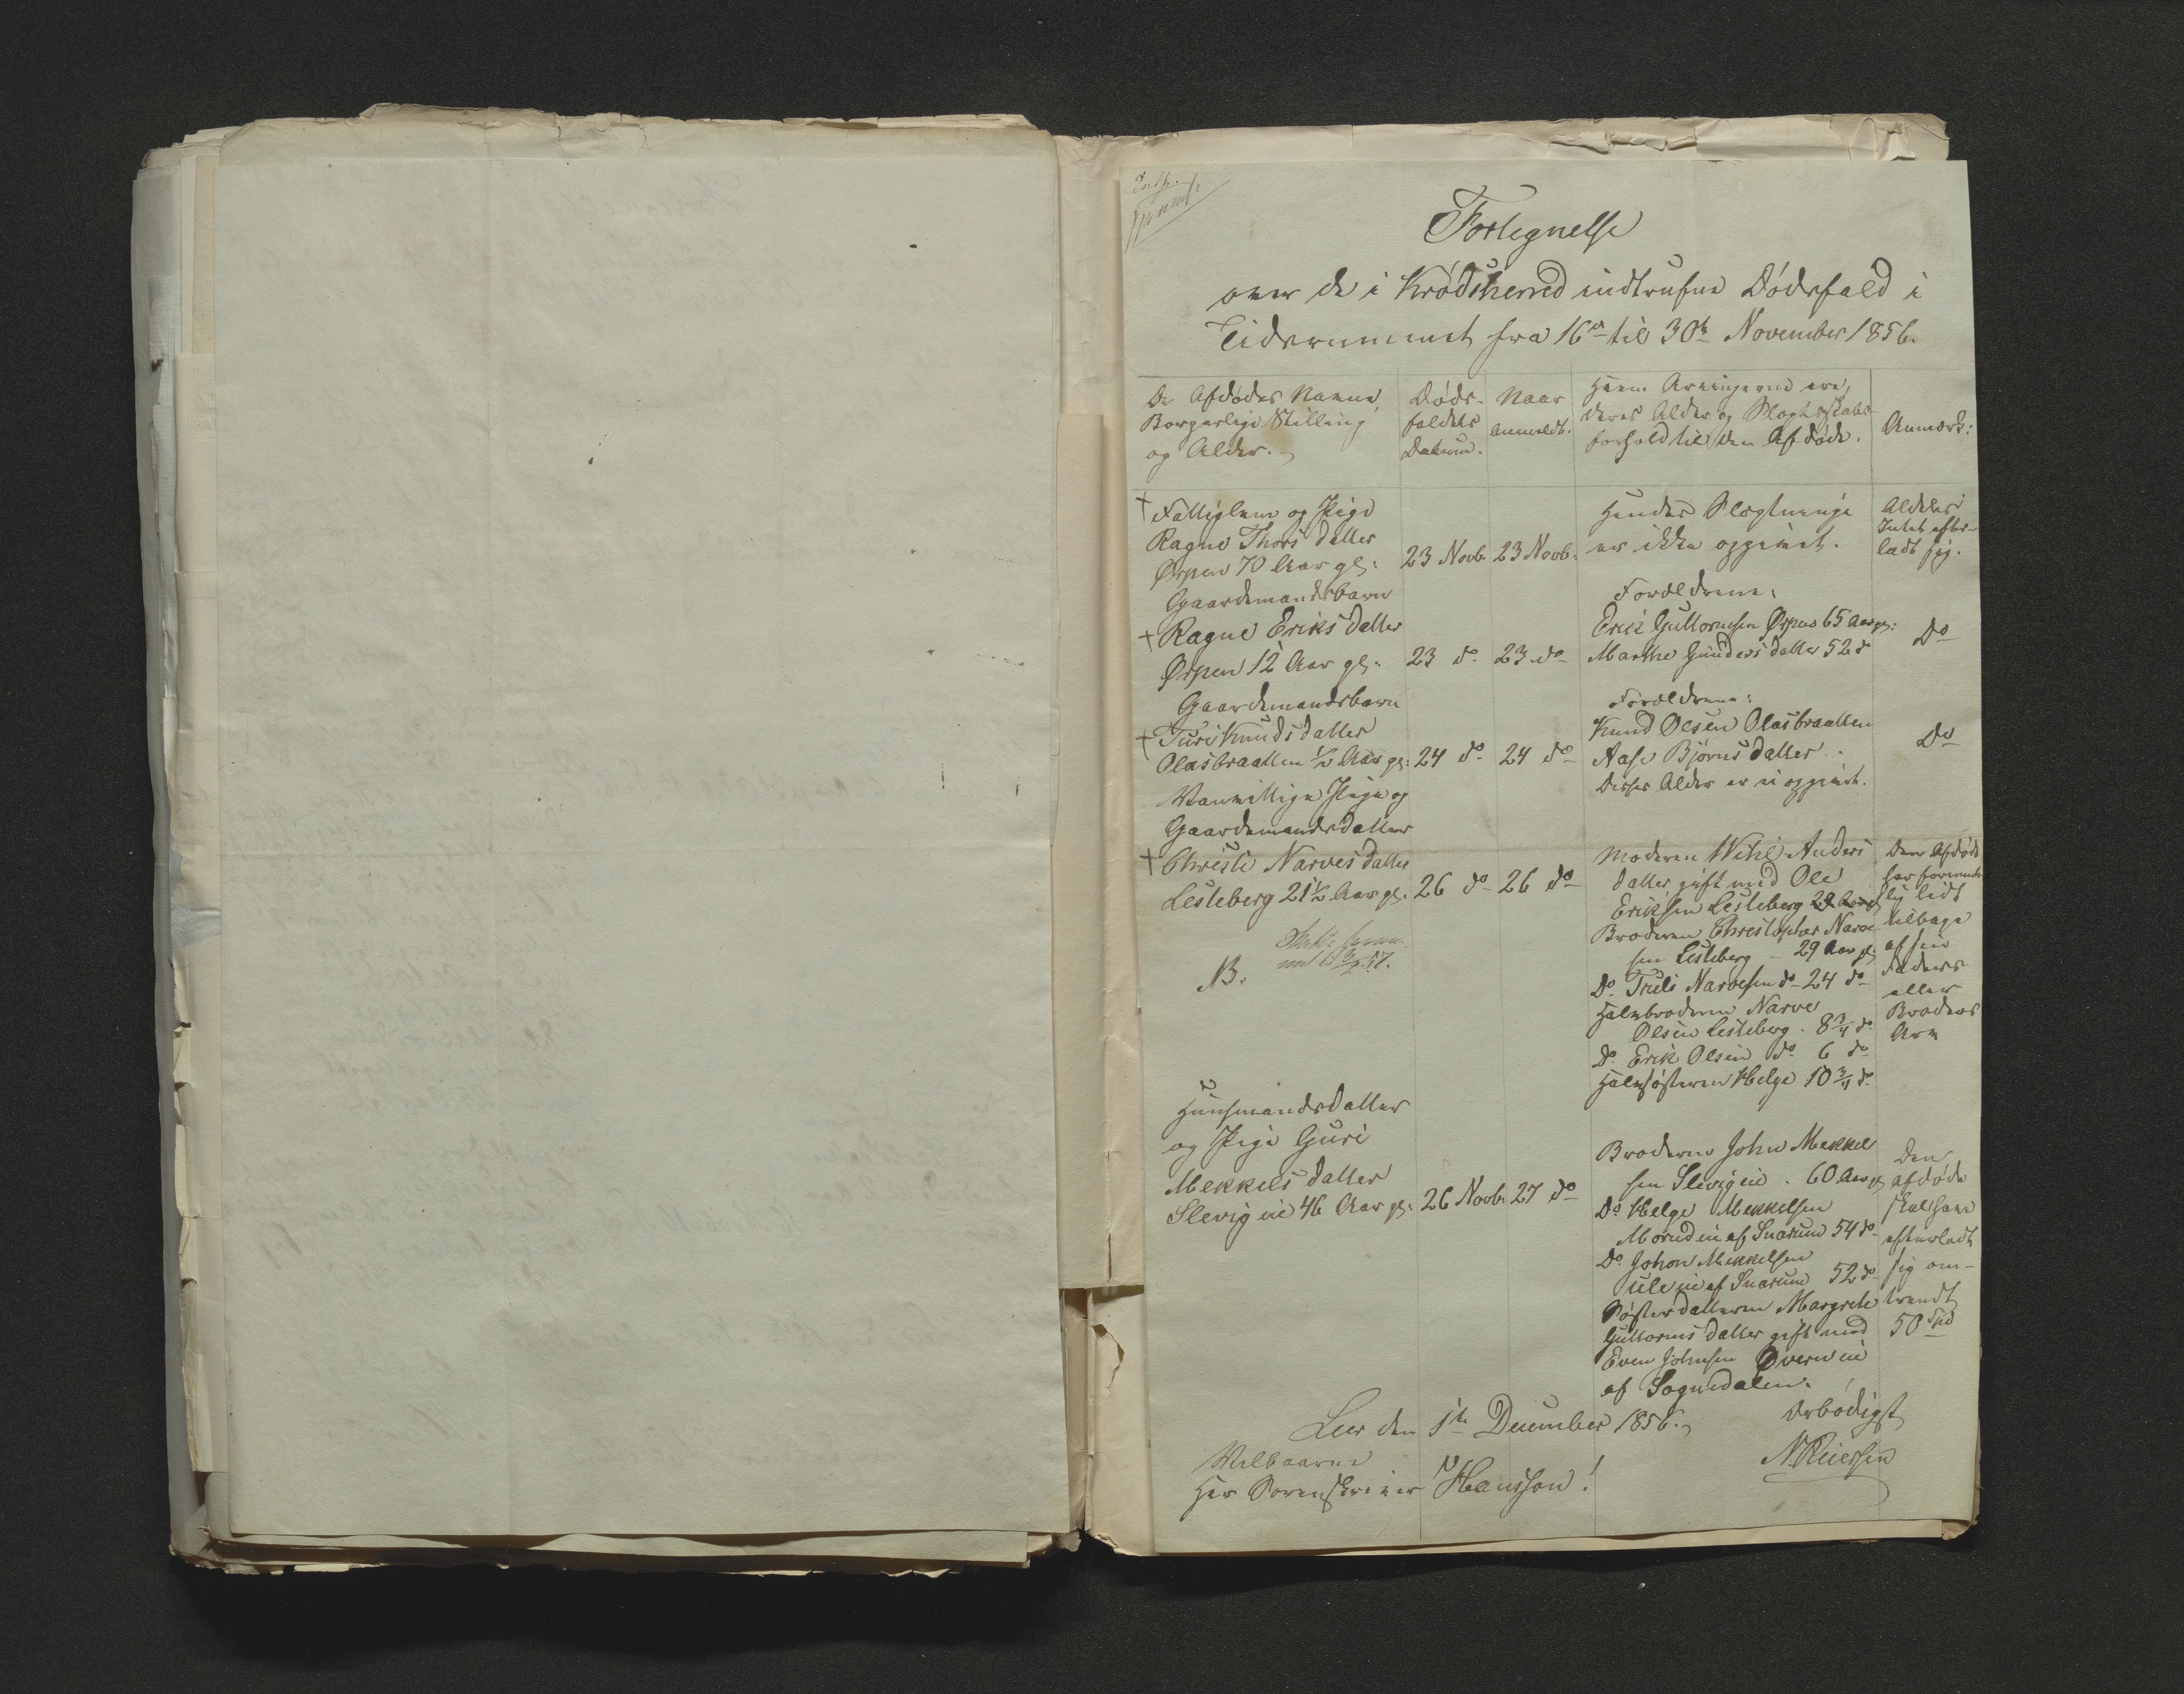 Fortegnelse
over de i Krødsherred indtrufne Dødsfald i
Tidsrummet fra 16de til 30te November 1856.
De Afdødes Navne,
Borgerlige Stilling
og Alder.
Døds-
faldets
Datum.
Naar
Anmeldt.
Hvem Arvingerne ere,
deres Alder og Slægtskabs-
forhold til den Afdøde.
Anmærk:
+ Fattiglem og Pige
Ragne Thors datter
Ørpen 70 Aar gl:
23 Novb.
23 Novb.
Hendes Slægtninge
er ikke opgivet.
Aldeles
Intet efter-
ladt sig.
Gaardmandsbarn
+ Ragne Eriks datter
Ørpen 12 Aar gl:
23 do
23 do
Forældrene:
Erik Guttormsen Ørpen 65 Aar gl:
Marthe Gunders datter 52 do
Do
Gaardmandsbarn
+ Turi Knuds datter
Olasbraatten ½ Aar gl:
24 do
24 do
Forældrene:
Knud Olsen Olasbraatten
Aase Bjørns datter
Disses Alder er ei opgivet.
Do
Vanvittige Pige og
Gaardmandsdatter
+ Christi Narves datter
Lesteberg 21½ Aar gl.
26 do
26 do
Moderen Anders
datter, gift med Ole
Eriksen Lesteberg
Broderen Christopher Narve-
sen Lesteberg - 29 Aar gl.
Do Truls Narvesen do 24 do
Halvbroderen Narve
Olsen Lesteberg. 8¾ do
Do Erik Olsen do 6 do
Halvsøsteren Helge 10¾ do
Den Afdøde
har forment-
lig lidt
tilbage
af sin
Faders
eller
Broders
Arv
B.
Huusmandsdatter
og Pige Guri
Mekkels datter
Slevig eie 46 Aar gl:
26 Novb.
27 do
Broderen John Mekkel
sen Slevigeie . 60 Aar gl.
Do Helge Mekkelsen
Morud eie af Snarum 54 do
Do Johon Mekkelsen
Ule eie af Snarum 52 do
Søsterdatteren Margrete
Guttorms datter gift med
Even Johnsen Øvern eie
af Sognedalen.
Den
afdøde
skal have
efterladt
sig om-
trendt
50 Spd
Leer den 1te December 1856.
Ærbødigst
N Reiersen
Velbaarne
Her Sorenskriver Hansson!